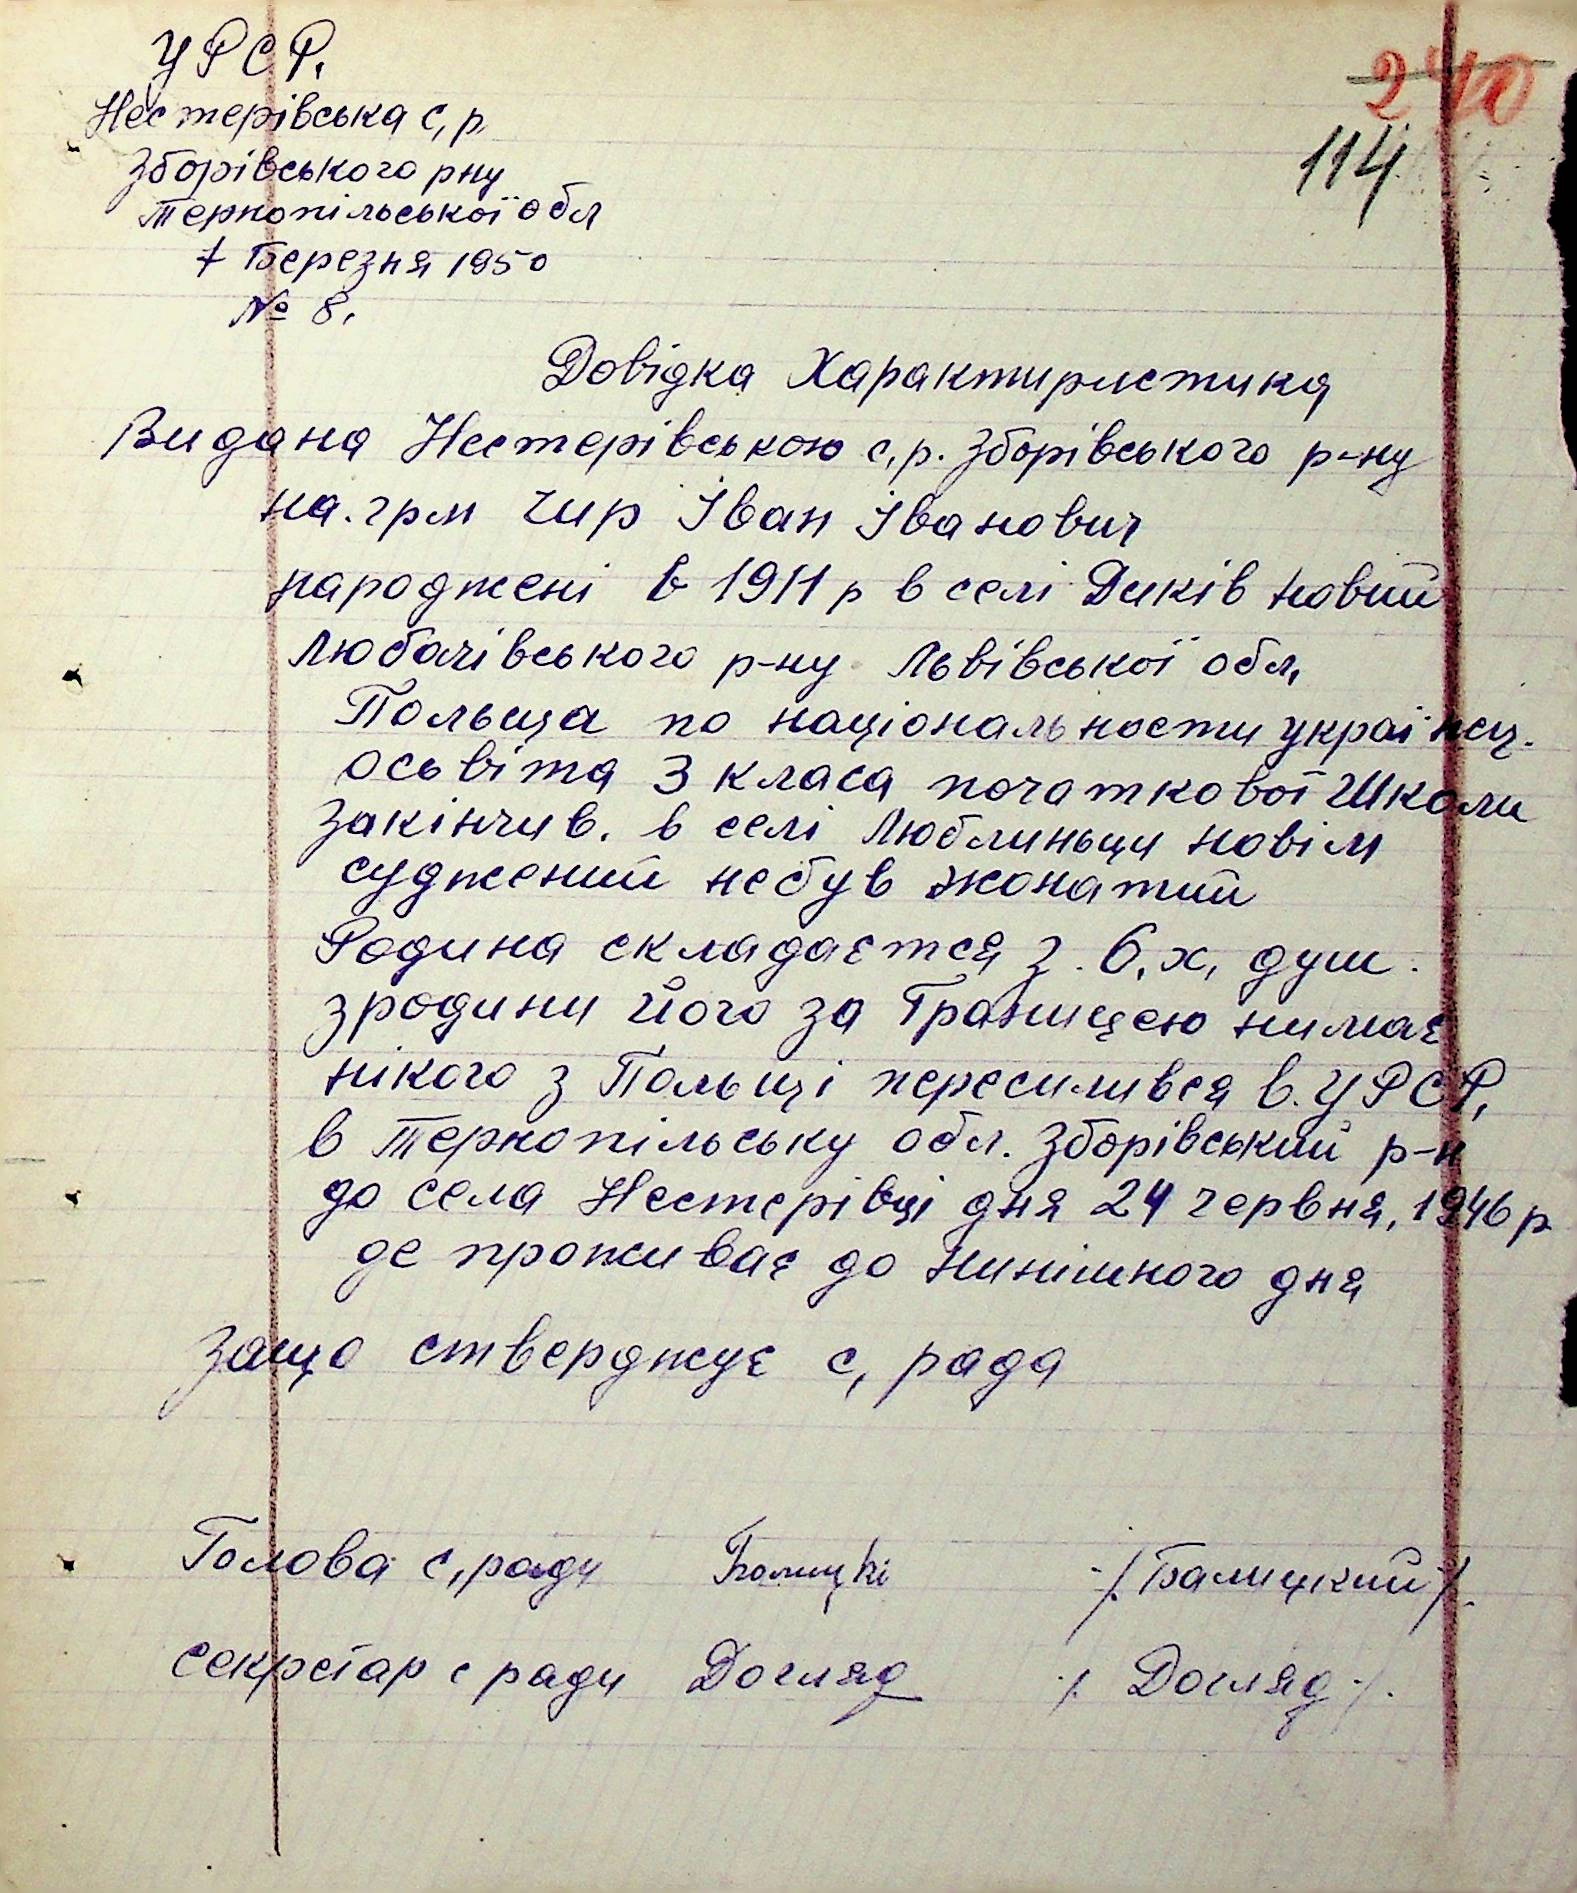 УРСР.
240
Нестерівська с, р
114
Зборівського рну
Тернопільської обл
7 Березня 1950
№ 8.
Довідка Характиристика
Видана Нестерівською с,р. Зборівського р-ну
на. грм Чир Іван Іванович
народжені в 1911 р в селі Диків Новий
Любачівського р-ну Львівської обл,
Польща по національности українец.
осьвіта 3 класа початкової школи
закінчив. в селі Люблиньци новім
суджений небув жонатий
Родина складаєтся з. 6,х, душ.
зродини його за Границею нимає
нікого з Польщі пересилився в. УРСР,
в Тернопільську обл. Зборівський р-н
до села Нестерівці дня 24 червня, 1946 р
де проживає до нинішного дня
защо стверджує с, рада
Голова с,ради Балицкі ./.Балицкий/.
секретар с ради Догляд ./. Догляд./.